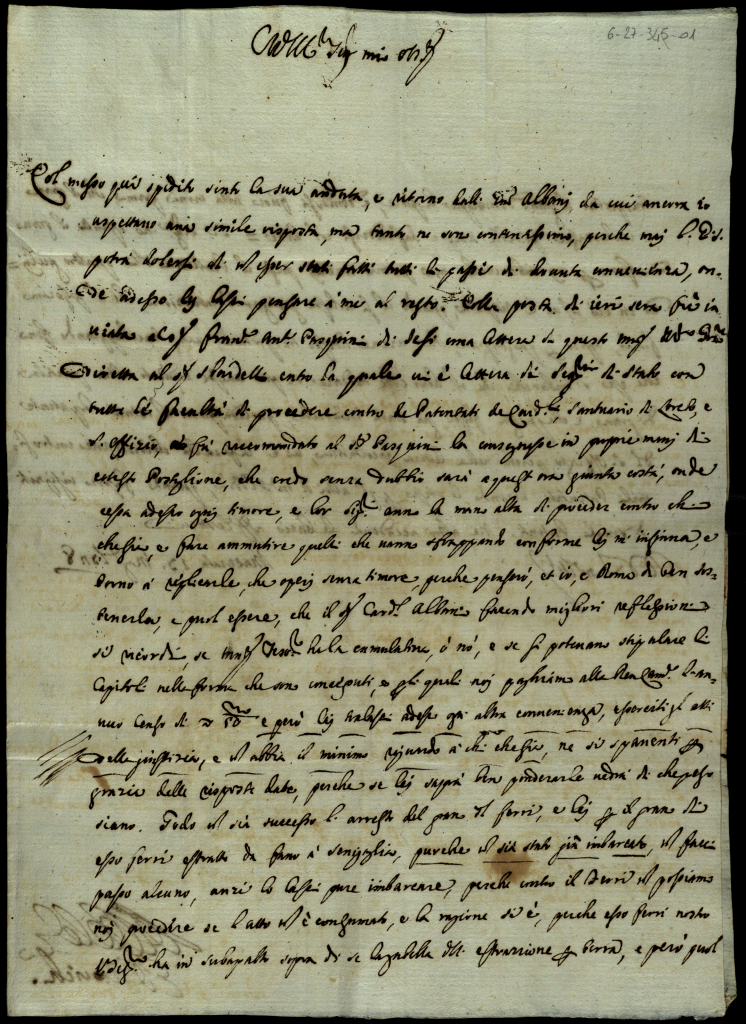 6-27-345-01
Sig mio oss
Col messo quì spedito sento la sua andata, e ritorno dall' Em Albani da cui ancora io
aspettavo una simile risposta, ma tanto ne son contentissimo, perche mai l.
potrà dolersi di esser stati fatti tutti li passi di dovuta convenienza, on-
de adesso lej lasci pensare à me al resto. Colla posta di ieri sera fù in
viata al Sr Franc. Ant. Pasquini di Jesi una lettera di questo
Diretta al Sr Sbardelli entro la quale vi è lettera di Segria di stato con
tutte le facoltà di procedere contro de Patentati de Card.li, santuario di Loreto, e
S. Offizio, fù raccomandato al Sr Pasquini la consegnasse in proprie manj di
cotesto Postiglione, che credo senza dubbio sarà a quest ora giunta costà, onde
cessa adesso ognj timore, e lor Sigri anno la man alta di proceder contro chi
chesia, e fare ammutire quelli che vanno conforme lej m' insinua, e
torno à replicarle, che operj senza timore, perche penserò, et io, e Roma di ben sos-
tenerla, e puol essere, che il Sr Card. Albani facendo migliori reflessioni
si ricordi, se Tesore ha la cumulativa, ò nò, e se si potevano stipulare li
Capitoli nella forma che sono concepiti, e pli quali noj paghiamo alla Rev Cam. l'an-
nuo Censo di 50 e però lej tralasci adesso ogni altra convenienza, eserciti gl' atti
della giustizia, e abbia il minimo riguardo à chi chesia, ne si spaventi
grazia delle risposte date, perche se lej saprà ben ponderarle vedrà di che peso
siano. Godo sia successo l' arresto del gran di Ferri, e lej il gran di
esso Ferri estratto da Fano à Senigaglia, purche sia stato già imbarcato, facci
passo alcuno, anzi lo lasci pure imbarcare, perche contro il Ferri possiamo
noj procedere se l' atto è consumato, e la ragione si è, perche esso Ferri nostro
ha in subapalto sopra di se la gabella dell' estrazione terra, e però puol